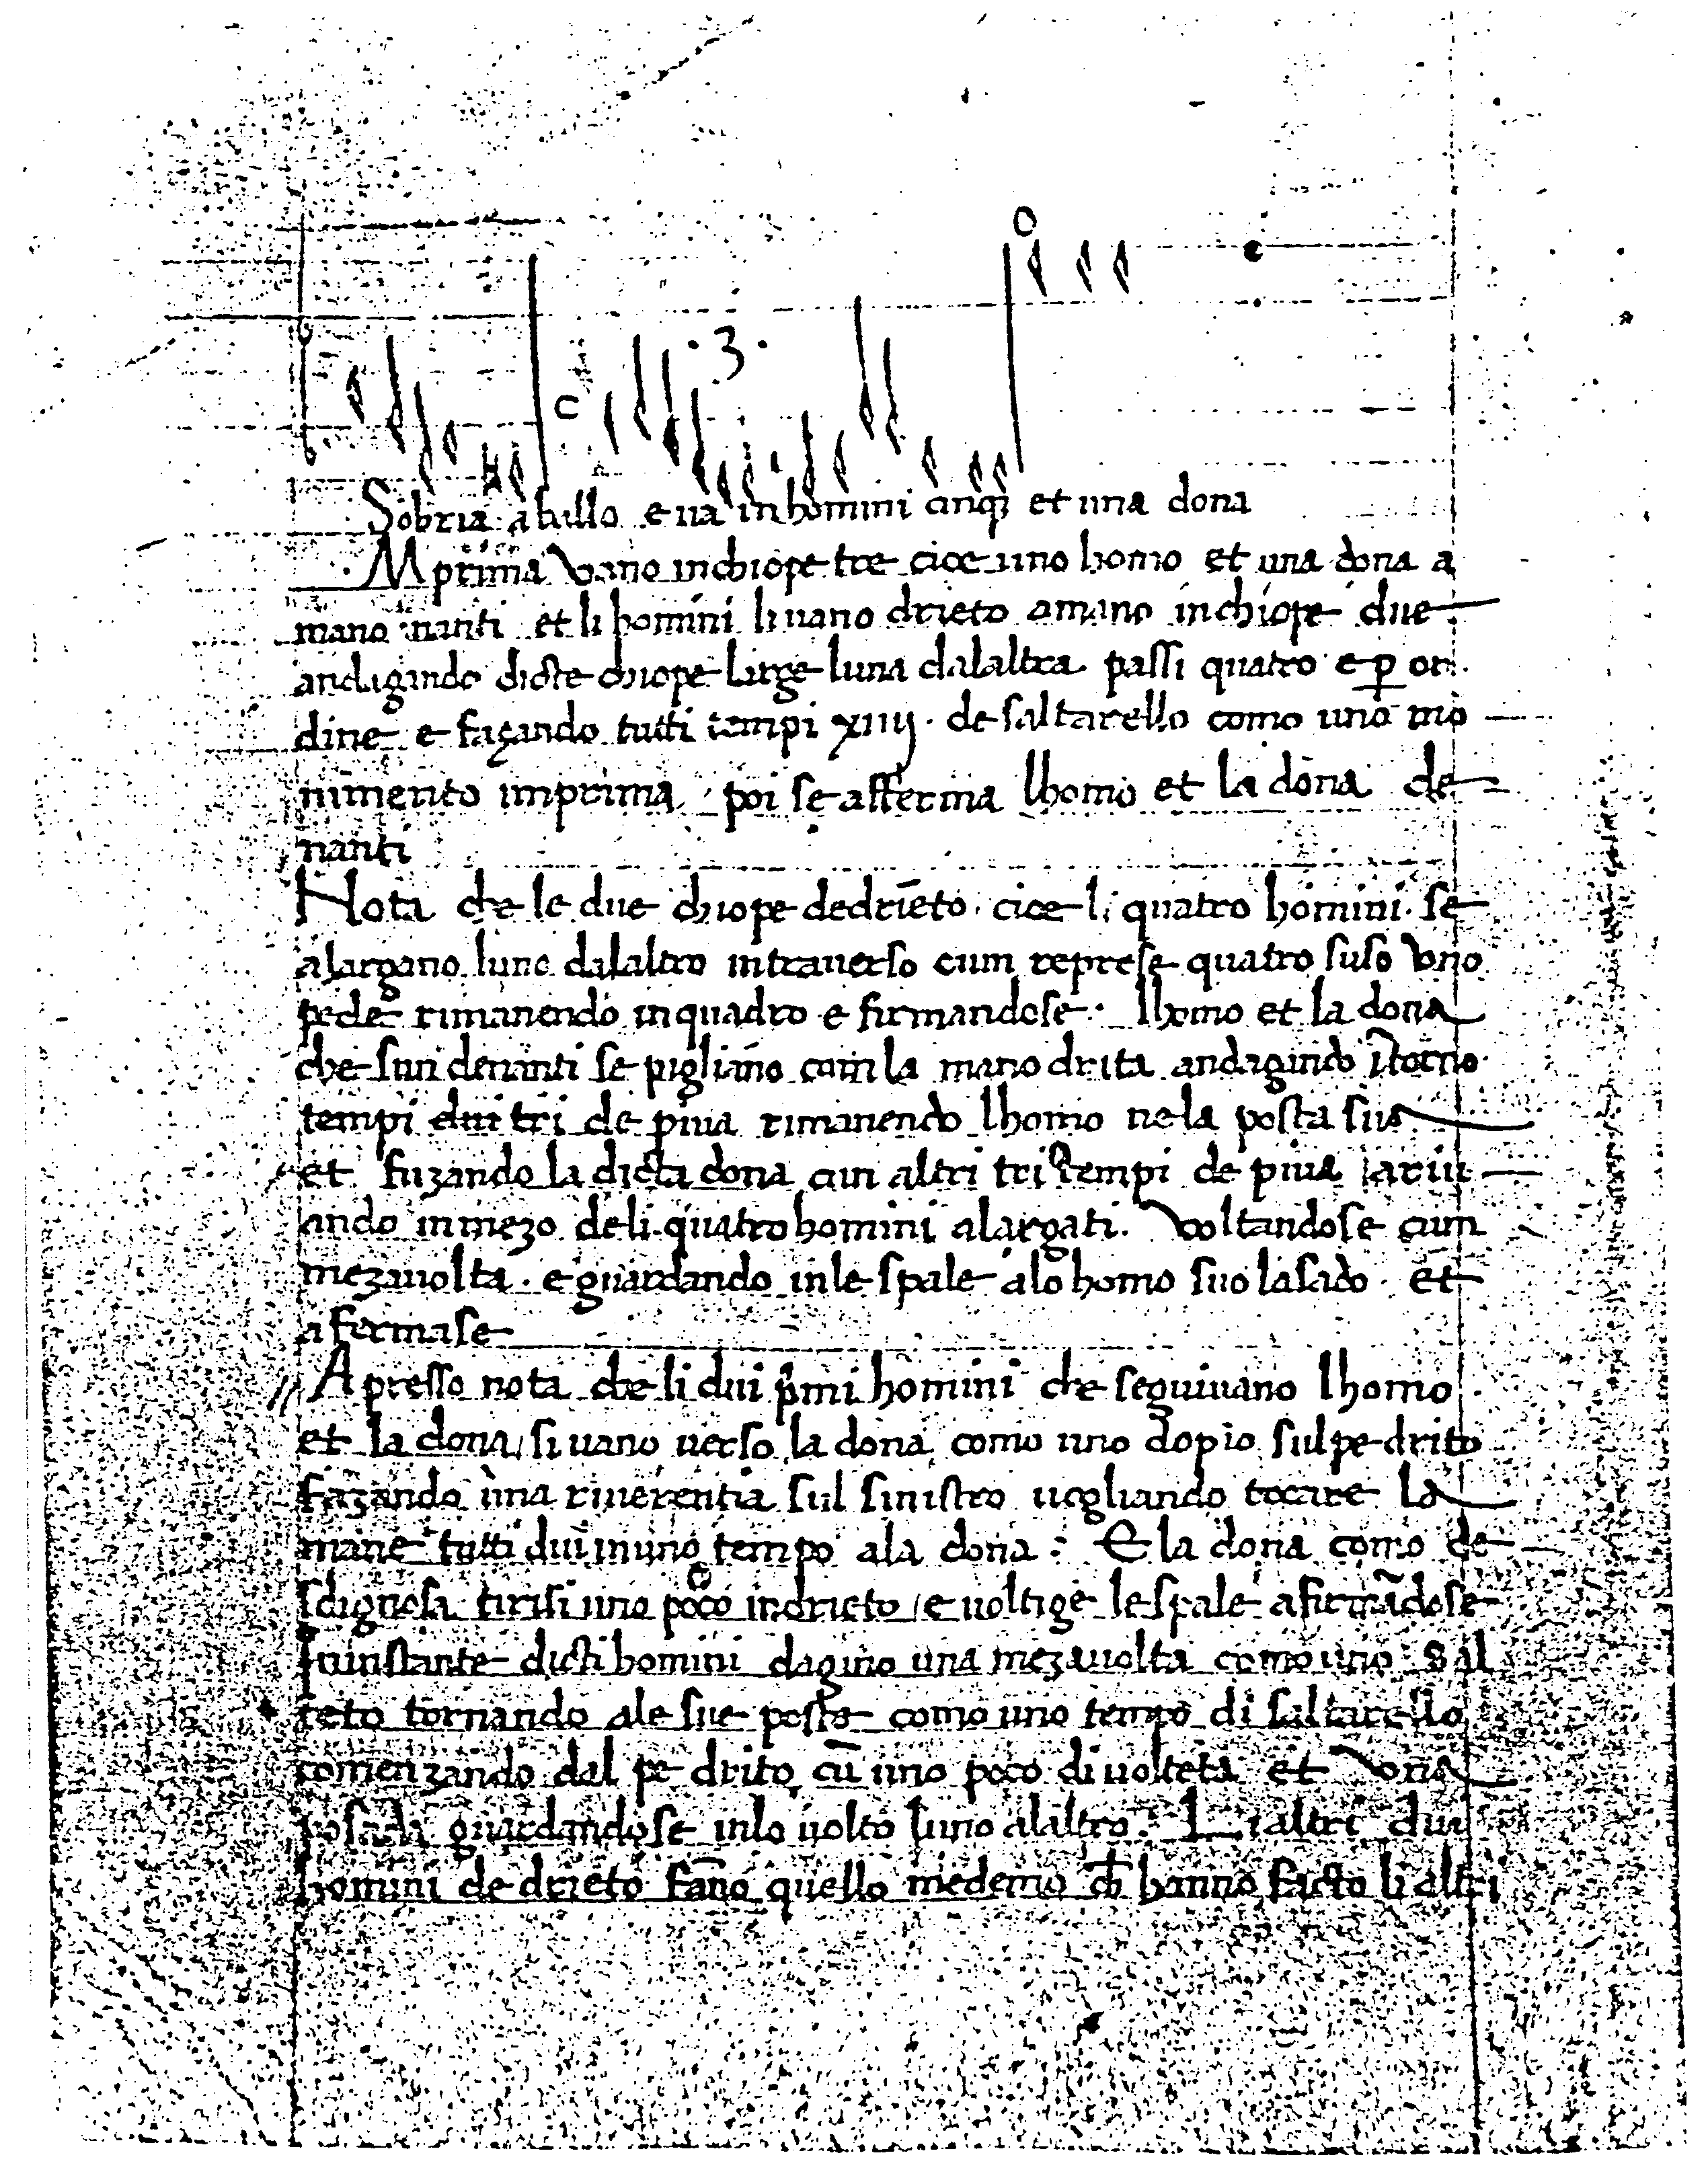 .3.
Sobria a ballo e va in homini cinqȝ et una dona
Mprima vano in chiope tre cioe uno homo et una dona a
mano nanti et li homini li vano drieto a mano in chiope due
andagando dicte chiope large luna dalaltra passi quatro e ꝑ or
dine e façando tutti tempi xiiij. de saltarello como uno mo
vimento imprima, poi se afferma lhomo et la dona de
nanti
Nota che le due chiope dedriēto. cioe li quatro homini. se
alargano luno dalaltro intraverso cum represe quatro suso vno
pede rimanendo inquadro e firmandose. lhomo et la dona
che sun denanti se pigliano cum la mano drita andagando ītorno
tempi dui tri de piva rimanendo lhomo ne la posta sua
et fuzando la dicta dona cun altri tri tempi de piva ariv
ando in mezo de li quatro homini alargati. voltandose cum
mezavolta. e guardando in le spale alo homo suo lasado. et
afermase
// Apresso nota che li dui p̄mi homini che seguivano lhomo
et la dona, si vano verso la dona como uno dopio sul pe drito
fazando una riverentia sul sinistro vogliando tocare la
mane tutti dui in uno tempo ala dona: E la dona como de
sdignosa tirisi uno poco indrieto / e voltige le spale afirmādose
In instante dicti homini dagino una mezavolta como uno sal
teto tornando ale sue poste como uno tempo di saltarello
comenzando dal pe drito cū uno poco di volteta et vna
posada guardandose in lo volto luno alaltro. Li altri dui
homini de drieto fāno quello medemo ch̄ hanno facto li altri